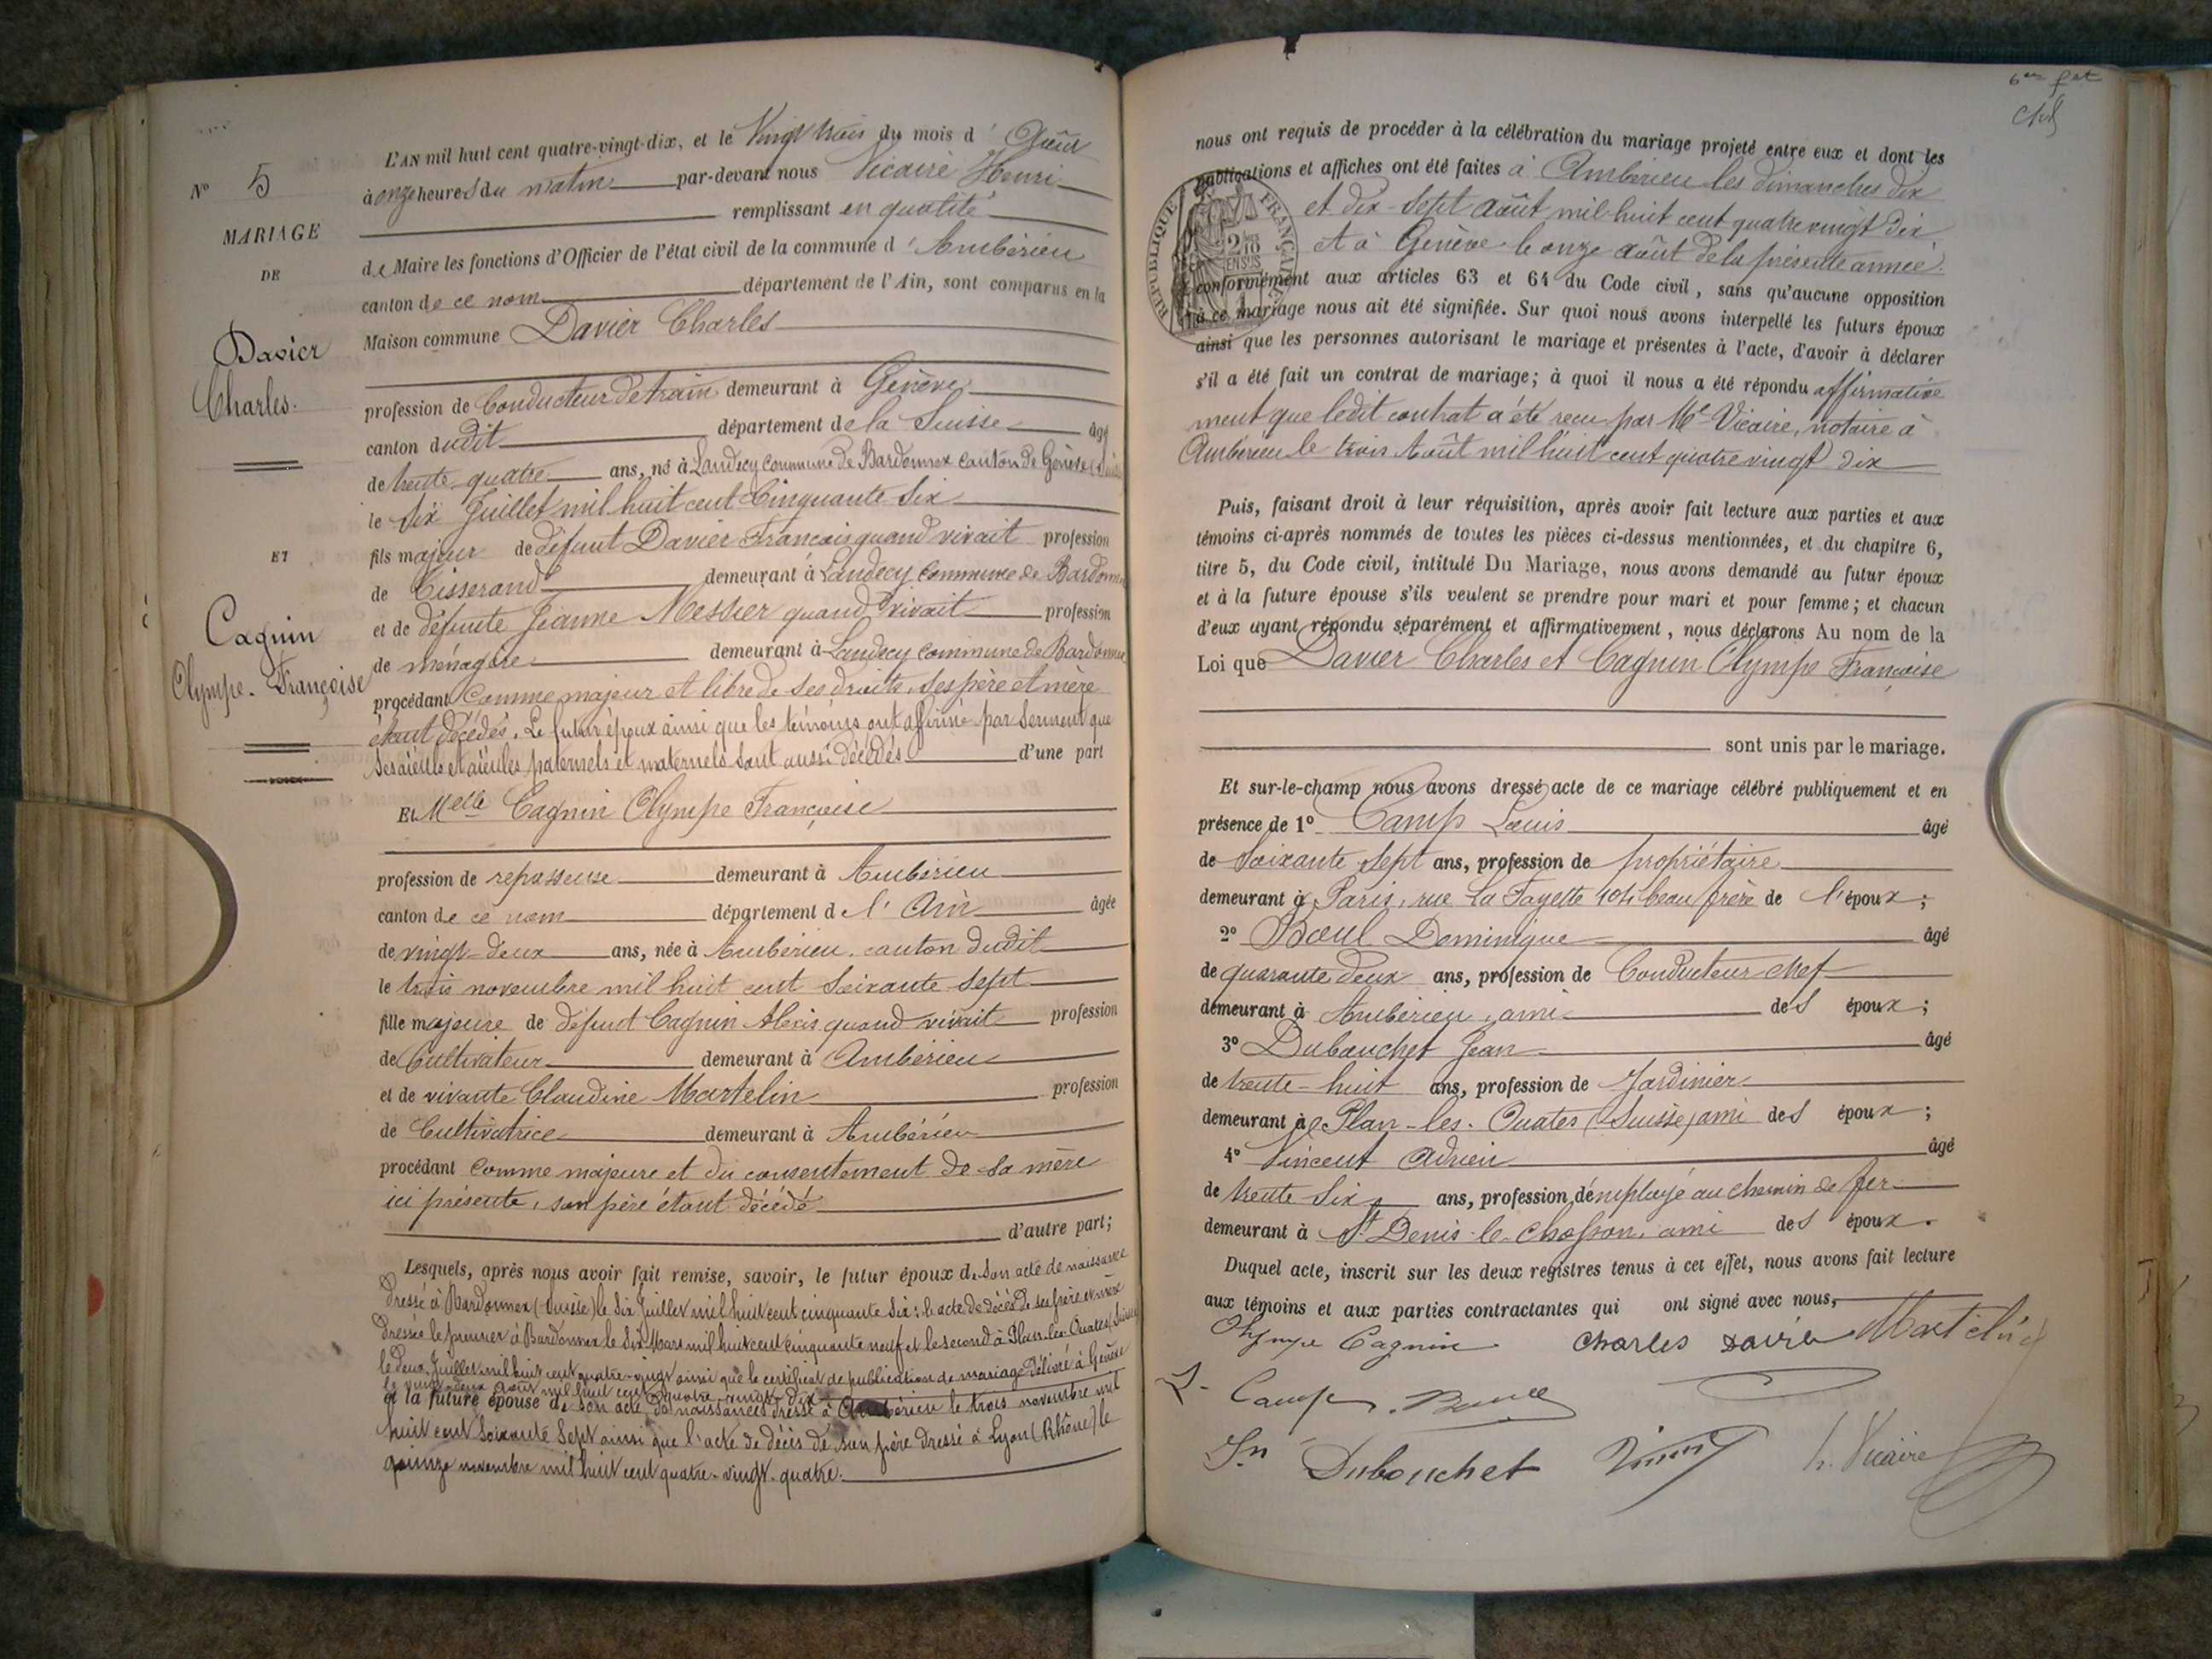 N° 5
MARIAGE
DE
Davier
Charles.
ET
Cagnin
Olympe-Françoise
L'AN mil huit cent quatre-vingt-dix, et le Vingt trois du mois d'Août
à onze heures du matin par-devant nous Vicaire Henri
remplissant en qualité
de Maire les fonctions d'Officier de l'état civil de la commune d'Ambérieu
canton de ce nom département de l'Ain, sont comparus en la
Maison commune Davier Charles
profession de Conducteur de train demeurant à Genève
canton dudit département de la Suisse âgé
de trente-quatre ans, né à Landecy commune de Bardonnex canton de Genève (Suisse)
le six Juillet mil huit cent cinquante six
fils majeur de défunt Davier François quand vivait profession
de Tisserand demeurant à Landecy commune de Bardonnex
et de défunte Jeanne Messier quand vivait profession
de ménagère demeurant à Landecy commune de Bardonnex
procédant comme majeur et libre de ses droits, ses père et mère
étant décédés. Le futur époux ainsi que les témoins ont affirmé par serment que
ses aïeuls et aïeules paternels et maternels sont aussi décédés d'une part
Et Melle Cagnin Olympe Françoise
profession de repasseuse demeurant à Ambérieu
canton de ce nom département de l'Ain âgée
de vingt-deux ans, née à Ambérieu, canton dudit
le trois novembre mil huit cent soixante-sept
fille majeure de défunt Cagnin Alexis quand vivait profession
de Cultivateur demeurant à Ambérieu
et de vivante Claudine Martelin profession
de Cultivatrice demeurant à Ambérieu
procédant comme majeure et du consentement de sa mère
ici présente, son père étant décédé
d'autre part;
Lesquels, après nous avoir fait remise, savoir, le futur époux de son acte de naissance
dressé à Bardonnex (Suisse) le six Juillet mil huit cent cinquante six; l'acte de décès de ses père et mère
dressés le premier à Bardonnex le six Mars mil huit cent cinquante neuf et le second à Plan-les-Ouates (Suisse)
le deux Juillet mil huit cent quatre-vingt ainsi que le certificat de publication de mariage délivré à Genève
le vingt deux Août mil huit cent quatre-vingt-dix
et la future épouse de son acte de naissance dressé à Ambérieu le trois novembre mil
huit cent soixante sept ainsi que l'acte de décès de son père dressé à Lyon (Rhône) le
quinze novembre mil huit cent quatre-vingt-quatre.
nous ont requis de procéder à la célébration du mariage projeté entre eux et dont les
publications et affiches ont été faites à Ambérieu les dimanches dix
et dix-sept août mil-huit cent quatre vingt dix
et à Genève le onze août de la présente année.
RÉPUBLIQUE FRANÇAISE
2/10 EN SUS
conformément aux articles 63 et 64 du Code civil, sans qu'aucune opposition
à ce mariage nous ait été signifiée. Sur quoi nous avons interpellé les futurs époux
ainsi que les personnes autorisant le mariage et présentes à l'acte, d'avoir à déclarer
s'il a été fait un contrat de mariage; à quoi il nous a été répondu affirmative
ment que ledit contrat a été reçu par Me Vicaire, notaire à
Ambérieu le trois Août mil huit cent quatre vingt dix
Puis, faisant droit à leur réquisition, après avoir fait lecture aux parties et aux
témoins ci-après nommés de toutes les pièces ci-dessus mentionnées, et du chapitre 6,
titre 5, du Code civil, intitulé Du Mariage, nous avons demandé au futur époux
et à la future épouse s'ils veulent se prendre pour mari et pour femme; et chacun
d'eux ayant répondu séparément et affirmativement, nous déclarons Au nom de la
Loi que Davier Charles et Cagnin Olympe Françoise
sont unis par le mariage.
Et sur-le-champ nous avons dressé acte de ce mariage célébré publiquement et en
présence de 1° Camp Louis âgé
de soixante sept ans, profession de propriétaire
demeurant à Paris, rue La Fayette 104 beau frère de l'époux;
2° Boeul Dominique âgé
de quarante deux ans, profession de Conducteur chef
demeurant à Ambérieu, ami des époux;
3° Dubouchet Jean âgé
de trente-huit ans, profession de Jardinier
demeurant à Plan-les-Ouates (Suisse) ami des époux;
4° Vincent Adrien âgé
de trente six ans, profession d'employé au chemin de fer
demeurant à St Denis-le-Chosson, ami des époux.
Duquel acte, inscrit sur les deux registres tenus à cet effet, nous avons fait lecture
aux témoins et aux parties contractantes qui ont signé avec nous,
Olympe Cagnin Charles Davier Martelin
L. Camp
Jn Dubouchet h. Vicaire